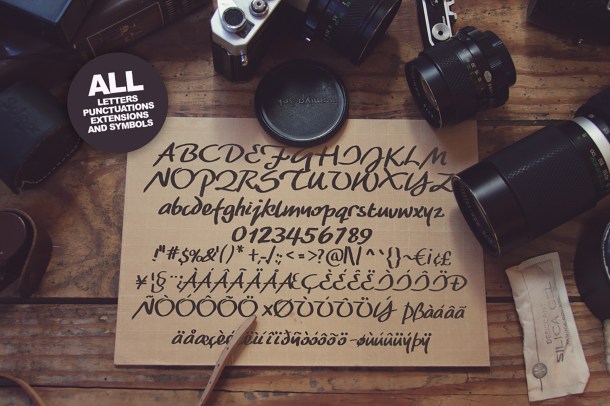 ALL
LETTERS
PUNCTUATIONS
EXTENSIONS
AND SYMBOLS
ABCDEFGHIJKLM
NOPQRSTUVWXYZ
abcdefghijklmnopqrstuvwxyz
0123456789
!"#$%&'()*+,-./:;<=>?@[\]^`{}~€¡¢£
¥¦§¨¡ÀÁÂÃÄÅÆÇÈÉÊËÌÍÎÏÐ
ÑÒÓÔÕÖ×ØÙÚÛÜÝ Þßàáâã
äåæçèé ëìíîïðñòóôõö÷øùúûüýþÿ
SILICA GEL